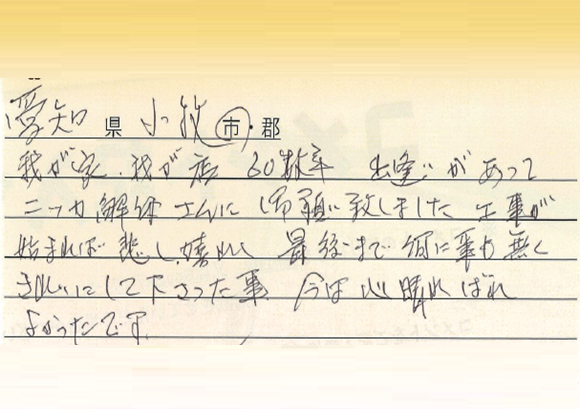 愛知県 小牧市・郡
我が家、我が店 60数年 出逢いがあって
ニッカ解体さんに御願い致しました 工事が
始まれば 悲し、嬉し 最後まで何に事も無く
きれいにして下さった事 今は心晴ればれ
よかったです。